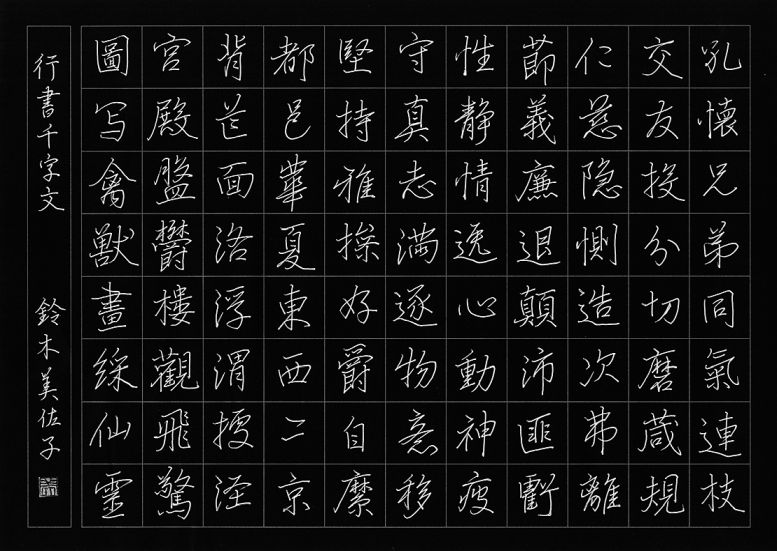 孔懐兄弟同氣連枝
交友投分切磨蔵規
仁慈隠惻造次弗離
節義廉退顛沛匪虧
性静情逸心動神疲
守真志満逐物意移
堅持雅操好爵自縻
都邑華夏東西二京
背芒面洛浮渭據涇
宮殿盤欝樓觀飛驚
圖写禽獣畫綵仙靈
行書千字文 鈴木美佐子